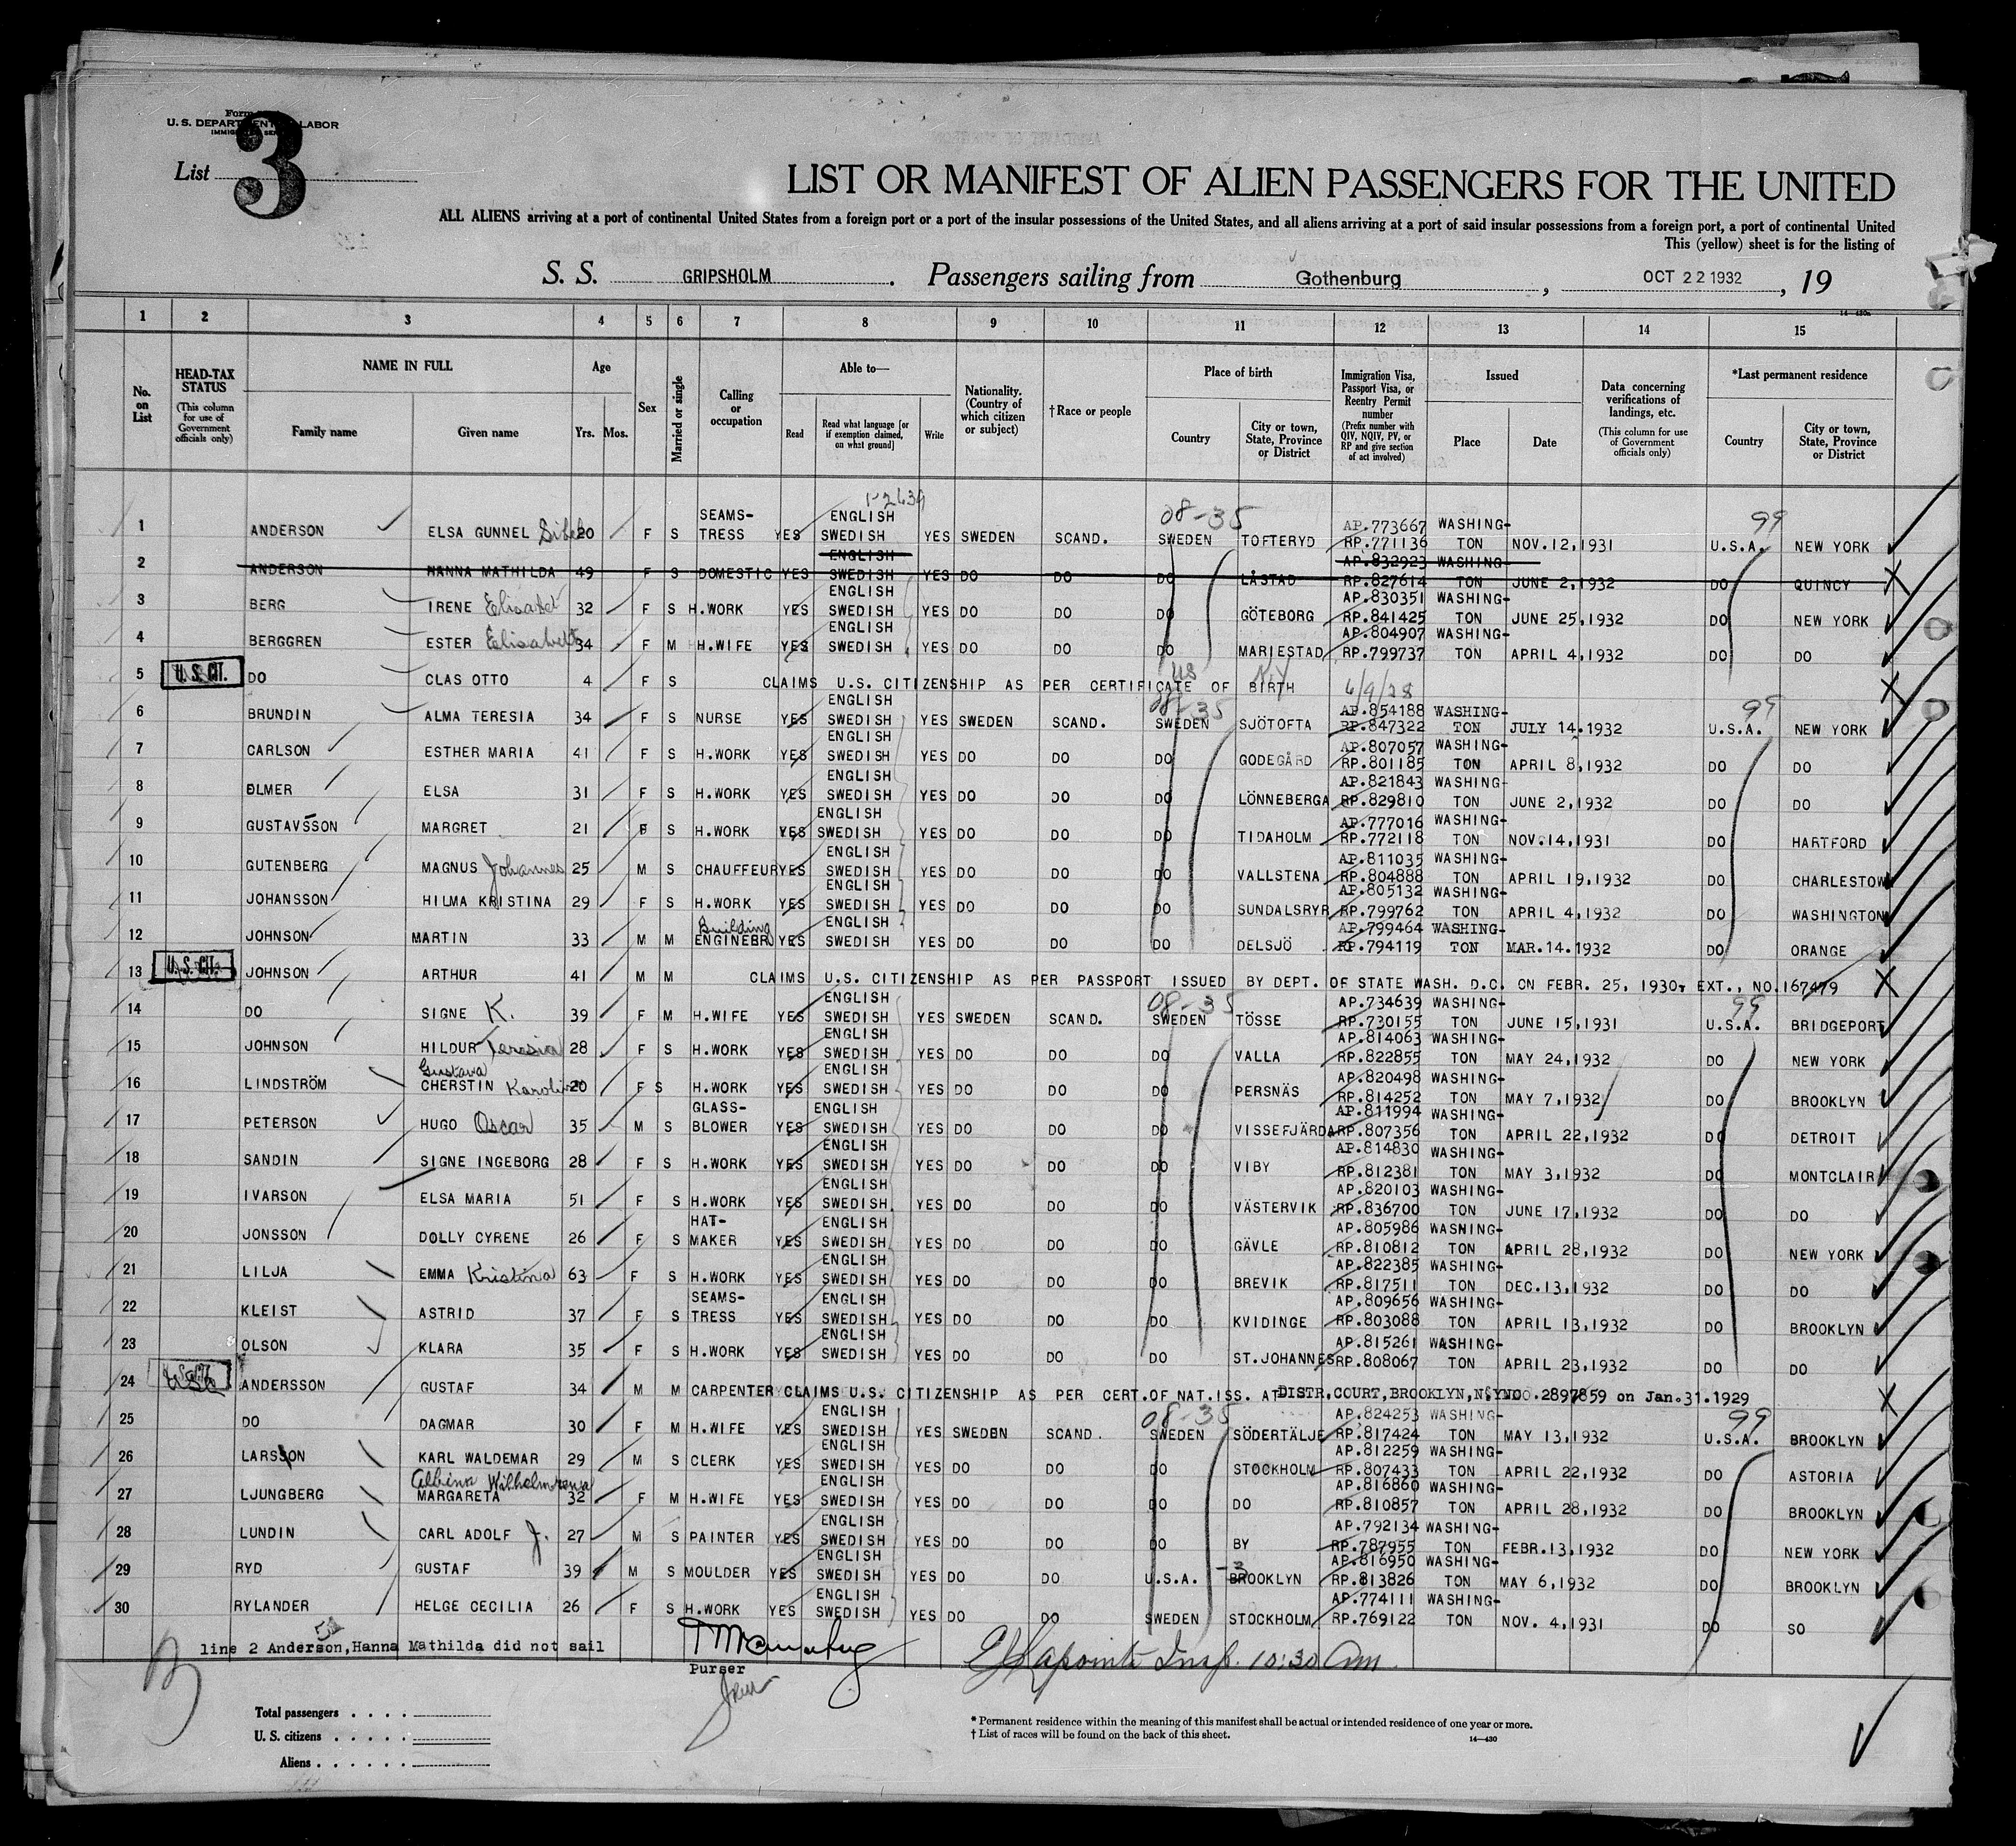 Form
U. S. DEPARTMENT LABOR
List 3
LIST OR MANIFEST OF ALIEN PASSENGERS FOR THE UNITED
ALL ALIENS arriving at a port of continental United States from a foreign port or a port of the insular possessions of the United States, and all aliens arriving at a port of said insular possessions from a foreign port, a port of continental United
This (yellow) sheet is for the listing of
S. S. GRIPSHOLM . Passengers sailing from Gothenburg , OCT 22 1932 , 19
1 2 3 4 5 6 7 8 9 10 11 12 13 14 15
No. on List
HEAD-TAX STATUS (This column for use of Government officials only)
NAME IN FULL Family name Given name
Age Yrs. Mos.
Sex
Married or single
Calling or occupation
Able to— Read Read what language [or if exemption claimed, on what ground] Write
Nationality. (Country of which citizen or subject)
†Race or people
Place of birth Country City or town, State, Province or District
Immigration Visa, Passport Visa, or Reentry Permit number (Prefix number with QIV, NQIV, PV, or RP and give section of act involved)
Issued Place Date
Data concerning verifications of landings, etc. (This column for use of Government officials only)
*Last permanent residence Country City or town, State, Province or District
1-2639 08-35 99
1 ANDERSON ELSA GUNNEL 20 F S SEAMS-TRESS YES ENGLISH SWEDISH YES SWEDEN SCAND. SWEDEN TOFTERYD AP.773667 RP.771136 WASHING-TON NOV.12,1931 U.S.A. NEW YORK
2 ANDERSON HANNA MATHILDA 49 F S DOMESTIC YES ENGLISH SWEDISH YES DO DO DO LÅSTAD AP.832923 RP.827614 WASHING-TON JUNE 2,1932 DO QUINCY
3 BERG IRENE Elisabet 32 F S H.WORK YES ENGLISH SWEDISH YES DO DO DO GÖTEBORG AP.830351 RP.841425 WASHING-TON JUNE 25,1932 DO NEW YORK
4 BERGGREN ESTER Elisabeth 34 F M H.WIFE YES ENGLISH SWEDISH YES DO DO DO MARIESTAD AP.804907 RP.799737 WASHING-TON APRIL 4,1932 DO DO
5 U. S. CIT. DO CLAS OTTO 4 F S CLAIMS U.S. CITIZENSHIP AS PER CERTIFICATE OF BIRTH US N.Y 6/9/28
08-35 99
6 BRUNDIN ALMA TERESIA 34 F S NURSE YES ENGLISH SWEDISH YES SWEDEN SCAND. SWEDEN SJÖTOFTA AP.854188 RP.847322 WASHING-TON JULY 14.1932 U.S.A. NEW YORK
7 CARLSON ESTHER MARIA 41 F S H.WORK YES ENGLISH SWEDISH YES DO DO DO GODEGÅRD AP.807057 RP.801185 WASHING-TON APRIL 8,1932 DO DO
8 ELMER ELSA 31 F S H.WORK YES ENGLISH SWEDISH YES DO DO DO LÖNNEBERGA AP.821843 RP.829810 WASHING-TON JUNE 2,1932 DO DO
9 GUSTAVSSON MARGRET 21 F S H.WORK YES ENGLISH SWEDISH YES DO DO DO TIDAHOLM AP.777016 RP.772118 WASHING-TON NOV.14,1931 DO HARTFORD
10 GUTENBERG MAGNUS Johannes 25 M S CHAUFFEUR YES ENGLISH SWEDISH YES DO DO DO VALLSTENA AP.811035 RP.804888 WASHING-TON APRIL 19,1932 DO CHARLESTOWN
11 JOHANSSON HILMA KRISTINA 29 F S H.WORK YES ENGLISH SWEDISH YES DO DO DO SUNDALSRYR AP.805132 RP.799762 WASHING-TON APRIL 4,1932 DO WASHINGTON
12 JOHNSON MARTIN 33 M M Building ENGINEER YES ENGLISH SWEDISH YES DO DO DO DELSJÖ AP.799464 RP.794119 WASHING-TON MAR.14.1932 DO ORANGE
13 U. S. CIT. JOHNSON ARTHUR 41 M M CLAIMS U.S. CITIZENSHIP AS PER PASSPORT ISSUED BY DEPT. OF STATE WASH. D.C. ON FEBR. 25, 1930, EXT., NO.167479
08-35 99
14 DO SIGNE K. 39 F M H.WIFE YES ENGLISH SWEDISH YES SWEDEN SCAND. SWEDEN TÖSSE AP.734639 RP.730155 WASHING-TON JUNE 15,1931 U.S.A. BRIDGEPORT
15 JOHNSON HILDUR Teresia 28 F S H.WORK YES ENGLISH SWEDISH YES DO DO DO VALLA AP.814063 RP.822855 WASHING-TON MAY 24,1932 DO NEW YORK
16 LINDSTRÖM Gustava CHERSTIN 20 F S H.WORK YES ENGLISH SWEDISH YES DO DO DO PERSNÄS AP.820498 RP.814252 WASHING-TON MAY 7,1932 DO BROOKLYN
17 PETERSON HUGO Oscar 35 M S GLASS-BLOWER YES ENGLISH SWEDISH YES DO DO DO VISSEFJÄRDA AP.811994 RP.807356 WASHING-TON APRIL 22,1932 DO DETROIT
18 SANDIN SIGNE INGEBORG 28 F S H.WORK YES ENGLISH SWEDISH YES DO DO DO VIBY AP.814830 RP.812381 WASHING-TON MAY 3,1932 DO MONTCLAIR
19 IVARSON ELSA MARIA 51 F S H.WORK YES ENGLISH SWEDISH YES DO DO DO VÄSTERVIK AP.820103 RP.836700 WASHING-TON JUNE 17,1932 DO DO
20 JONSSON DOLLY CYRENE 26 F S HAT-MAKER YES ENGLISH SWEDISH YES DO DO DO GÄVLE AP.805986 RP.810812 WASHING-TON APRIL 28,1932 DO NEW YORK
21 LILJA EMMA Kristina 63 F S H.WORK YES ENGLISH SWEDISH YES DO DO DO BREVIK AP.822385 RP.817511 WASHING-TON DEC.13,1932 DO DO
22 KLEIST ASTRID 37 F S SEAMS-TRESS YES ENGLISH SWEDISH YES DO DO DO KVIDINGE AP.809656 RP.803088 WASHING-TON APRIL 13,1932 DO BROOKLYN
23 OLSON KLARA 35 F S H.WORK YES ENGLISH SWEDISH YES DO DO DO ST.JOHANNES AP.815261 RP.808067 WASHING-TON APRIL 23,1932 DO DO
24 ANDERSSON GUSTAF 34 M M CARPENTER CLAIMS U.S. CITIZENSHIP AS PER CERT.OF NAT.ISS. AT DISTR.COURT,BROOKLYN,N.Y NO.2897859 on Jan.31.1929
08-35 99
25 DO DAGMAR 30 F M H.WIFE YES ENGLISH SWEDISH YES SWEDEN SCAND. SWEDEN SÖDERTÄLJE AP.824253 RP.817424 WASHING-TON MAY 13,1932 U.S.A. BROOKLYN
26 LARSSON KARL WALDEMAR 29 M S CLERK YES ENGLISH SWEDISH YES DO DO DO STOCKHOLM AP.812259 RP.807433 WASHING-TON APRIL 22,1932 DO ASTORIA
27 LJUNGBERG Albina MARGARETA 32 F M H.WIFE YES ENGLISH SWEDISH YES DO DO DO DO AP.816860 RP.810857 WASHING-TON APRIL 28,1932 DO BROOKLYN
28 LUNDIN CARL ADOLF J. 27 M S PAINTER YES ENGLISH SWEDISH YES DO DO DO BY AP.792134 RP.787955 WASHING-TON FEBR.13,1932 DO NEW YORK
29 RYD GUSTAF 39 M S MOULDER YES ENGLISH SWEDISH YES DO DO U.S.A. BROOKLYN AP.816950 RP.813826 WASHING-TON MAY 6,1932 DO BROOKLYN
30 RYLANDER HELGE CECILIA 26 F S H.WORK YES ENGLISH SWEDISH YES DO DO SWEDEN STOCKHOLM AP.774111 RP.769122 WASHING-TON NOV. 4,1931 DO SO
line 2 Anderson,Hanna Mathilda did not sail
Purser
Insp. 10:30 Am
Total passengers . . . .
U. S. citizens . . . . .
Aliens . . . . . .
* Permanent residence within the meaning of this manifest shall be actual or intended residence of one year or more.
† List of races will be found on the back of this sheet.
14—430